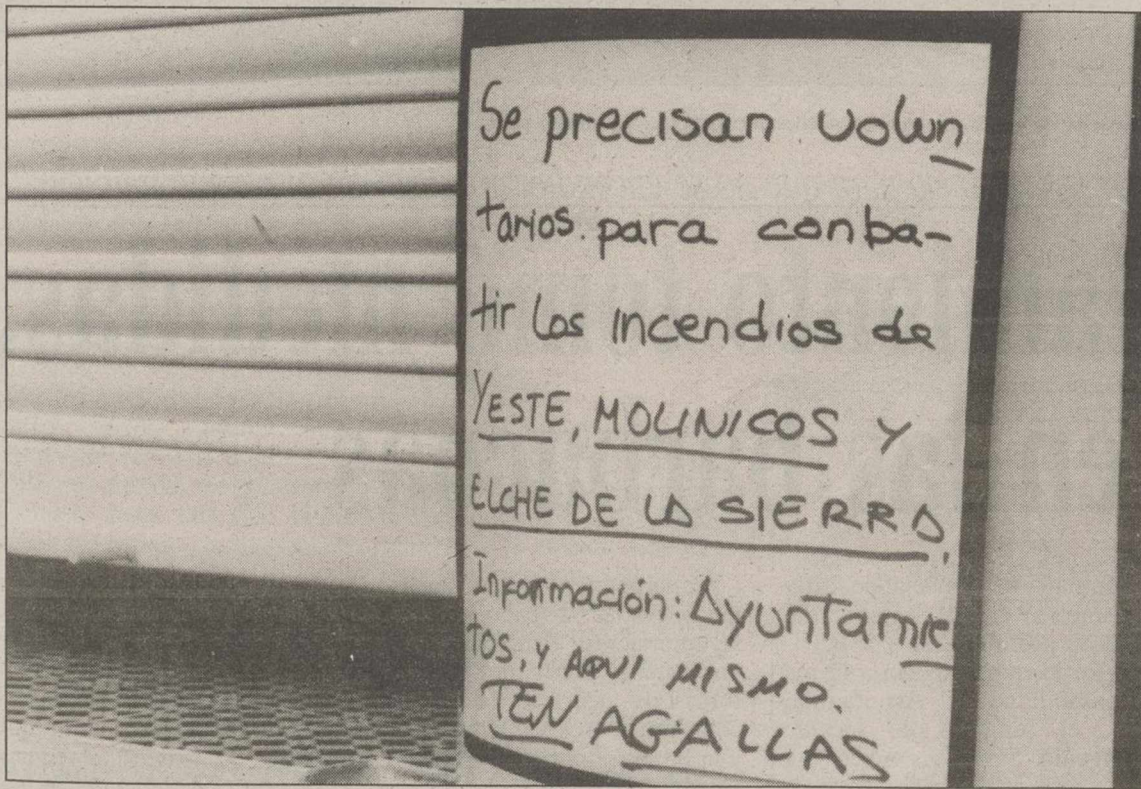 Se precisan volun
tarios. para conba-
tir los incendios de
YESTE, MOLINICOS Y
ELCHE DE LA SIERRA.
Información: Ayuntamie
tos, y AQUI MISMO.
TEN AGALLAS